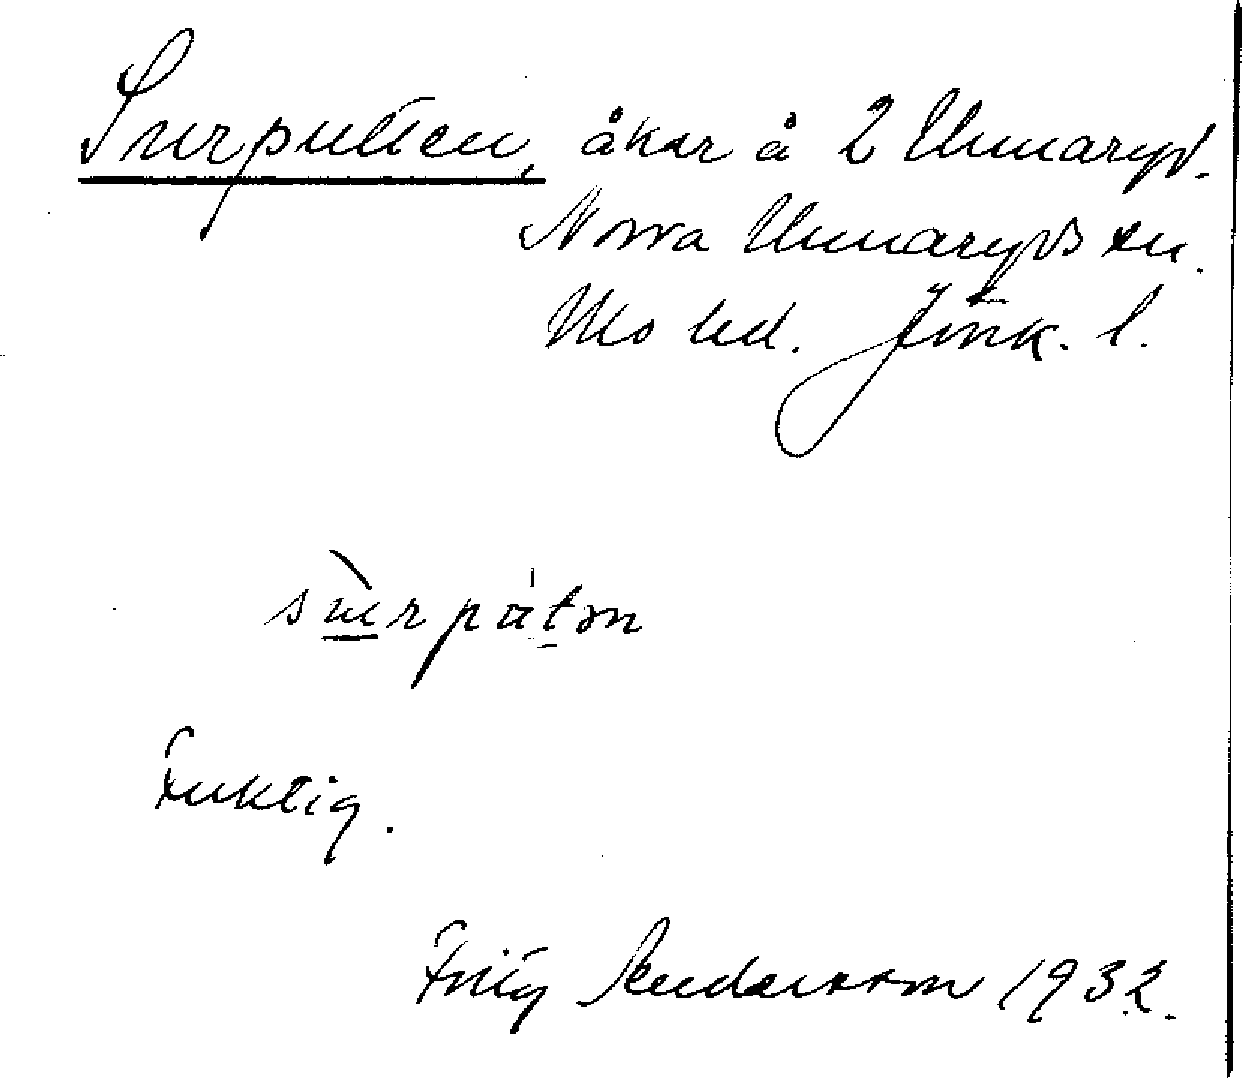 Surputten, åkar å 2 Unnaryd.
Norra Unnaryds sn.
Mo hd. Jönk. l.
sùrpátən
Fuktig.
Fritz Andersson 1932.